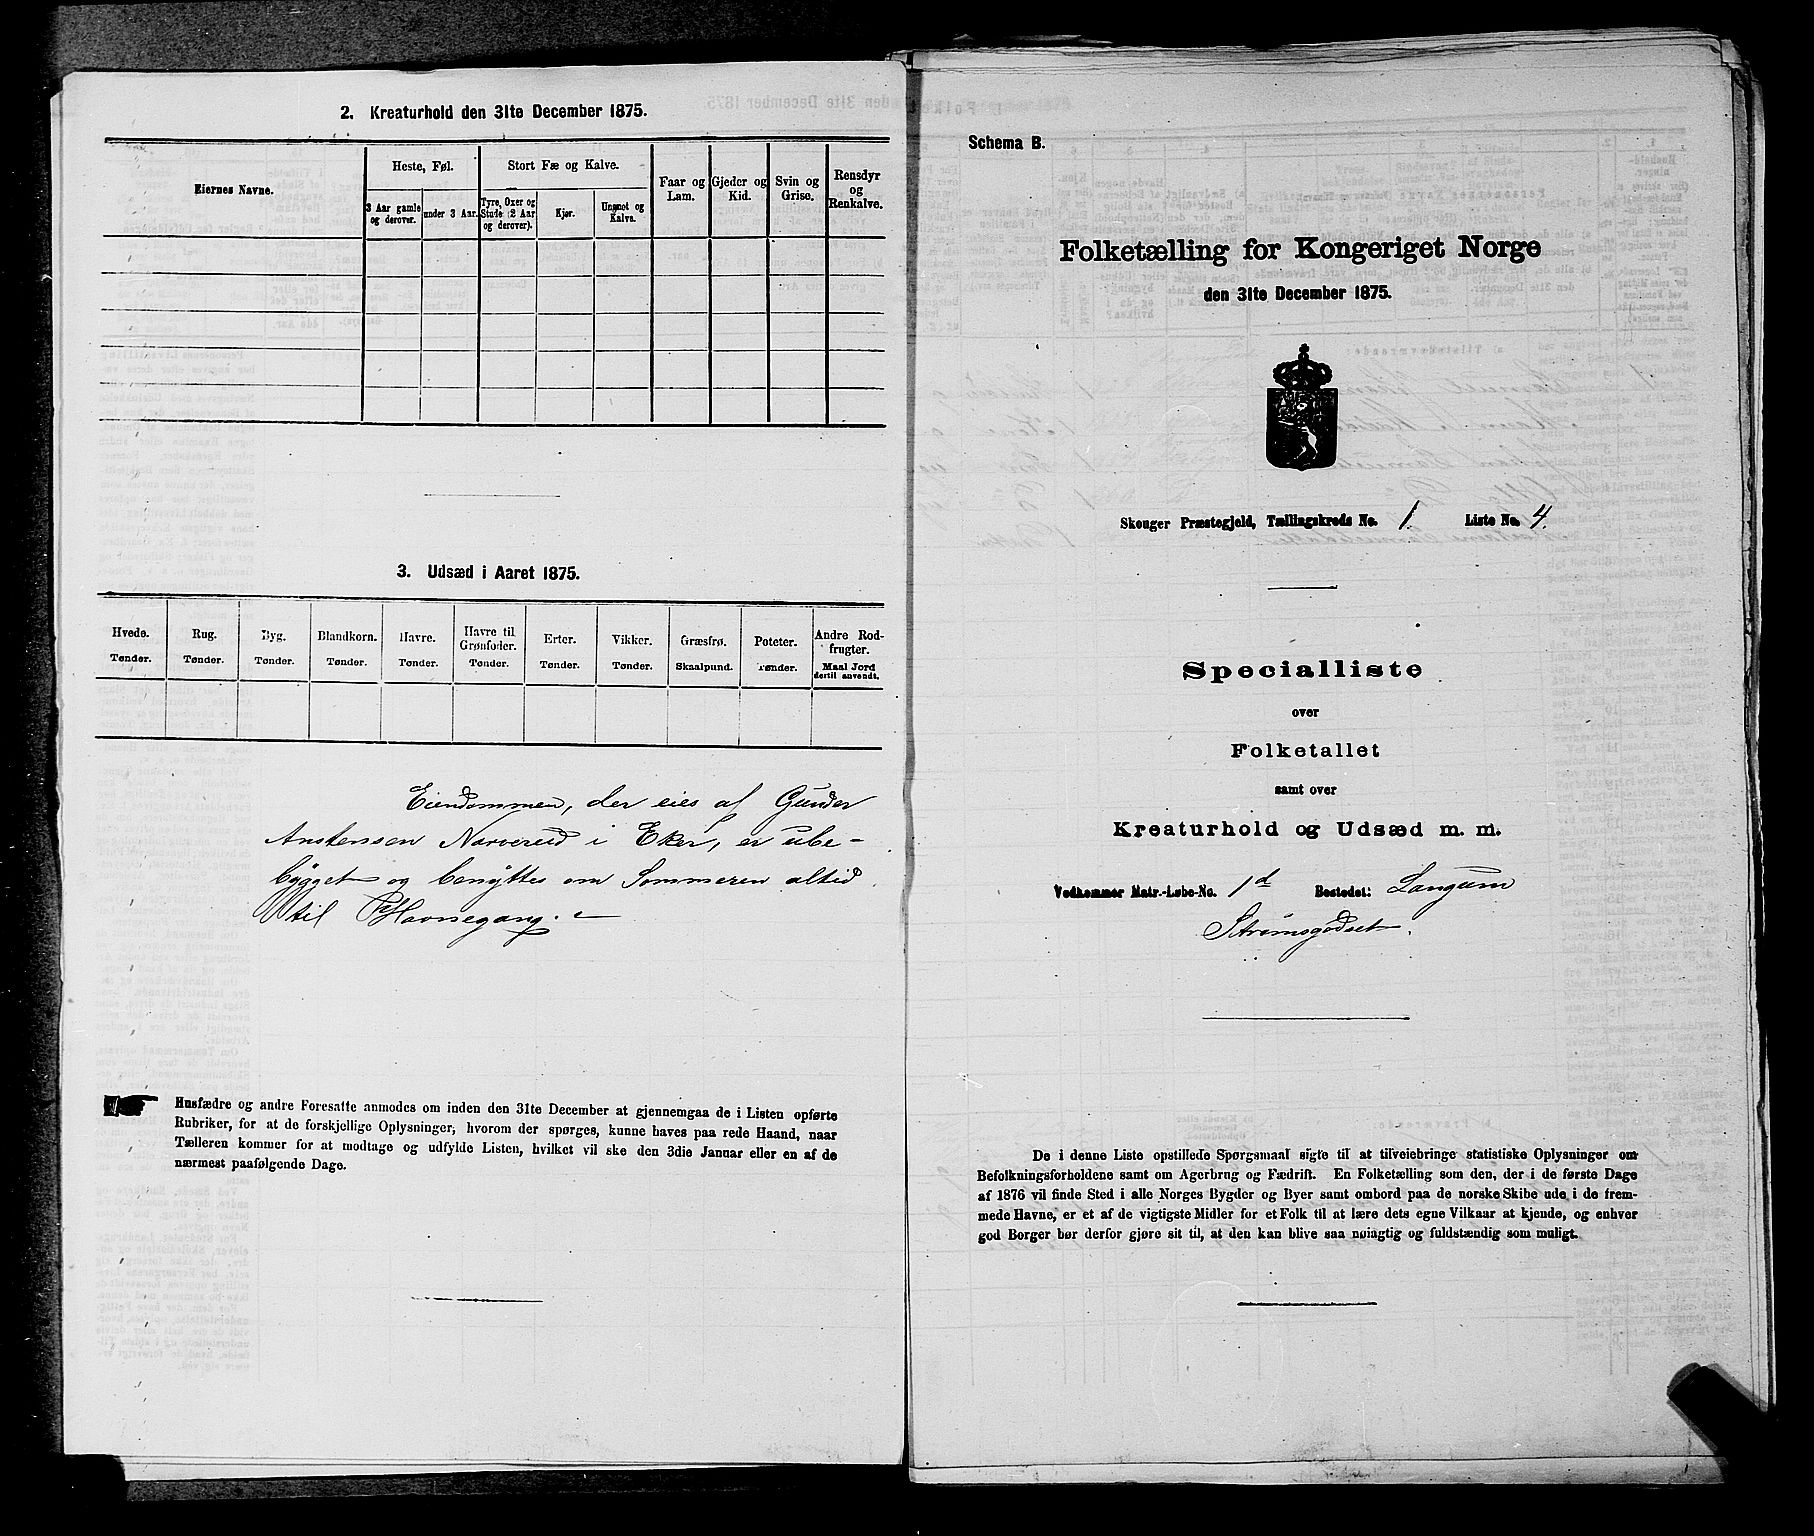 2. Kreaturhold den 31te December 1875.
Eiernes Navne.
Heste, Føl.
Stort Fæ og Kalve.
Faar og
Lam.
Gjeder og
Kid.
Svin og
Grise.
Rensdyr
og
Renkalve.
3 Aar gamle
og derover.
under 3 Aar.
Tyre, Oxer og
Stude (2 Aar
og derover).
Kjør.
Ungnot og
Kalve.
3. Udsæd i Aaret 1875.
Hvede.
Tønder.
Rug.
Tønder.
Byg.
Tønder.
Blandkorn.
Tønder.
Havre.
Tønder.
Havre til
Grønfoder.
Tønder.
Erter.
Tønder.
Vikker.
Tønder.
Græsfrø.
Skaalpund.
Poteter.
Tønder.
Andre Rod-
frugter.
Maal Jord
dertil anvendt.
Eiendommen, der eies af Gunder
Anstensen Narverud i Eker, er ube-
bygget og benyttes om Sommeren altid
til Havnegang.
Husfædre og andre Foresatte anmodes om inden den 31te December at gjennemgaa de i Listen opførte
Rubriker, for at de forskjellige Oplysninger, hvorom der spørges, kunne haves paa rede Haand, naar
Tælleren kommer for at modtage og udfylde Listen, hvilket vil ske den 3die Januar eller en af de
nærmest paafølgende Dage.
Schema B.
Folketælling for Kongeriget Norge
den 31te December 1875.
Skouger Præstegjeld, Tællingskreds No. 1 Liste No. 4.
Specialliste
over
Folketallet
samt over
Kreaturhold og Udsæd m. m.
Vedkommer Matr.-Løbe-No. 1d Bostedet: Langum
Strømsgodset.
De i denne Liste opstillede Spørgsmaal sigte til at tilveiebringe statistiske Oplysninger om
Befolkningsforholdene samt om Agerbrug og Fædrift. En Folketælling som den, der i de første Dage
af 1876 vil finde Sted i alle Norges Bygder og Byer samt ombord paa de norske Skibe ude i de frem-
mede Havne, er et af de vigtigste Midler for et Folk til at lære dets egne Vilkaar at kjende, og enhver
god Borger bør derfor gjøre sit til, at den kan blive saa nøiagtig og fuldstændig som muligt.